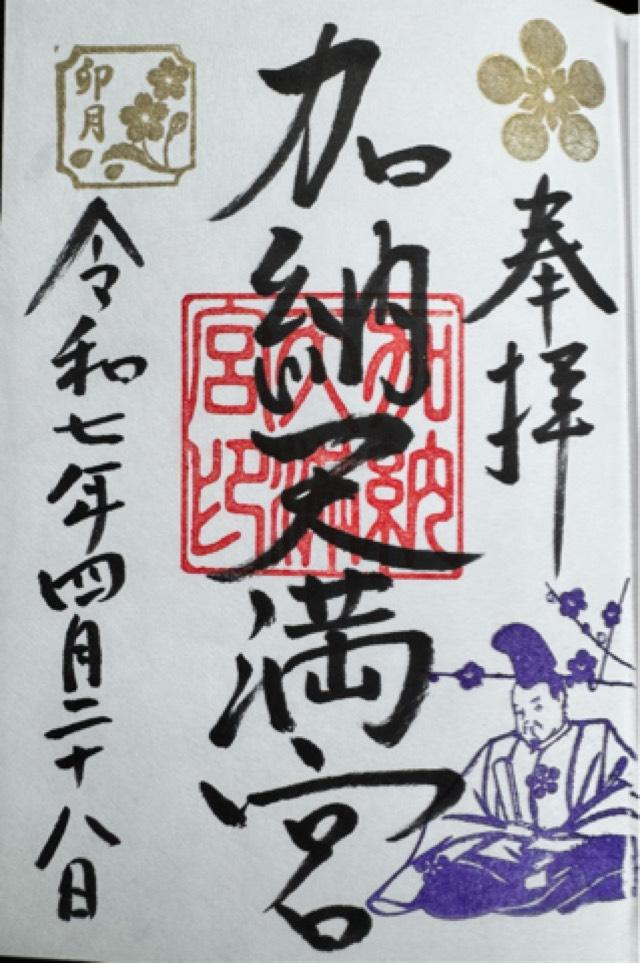 奉拝
加納天満宮
加納天満宮印
卯月
令和七年四月二十八日